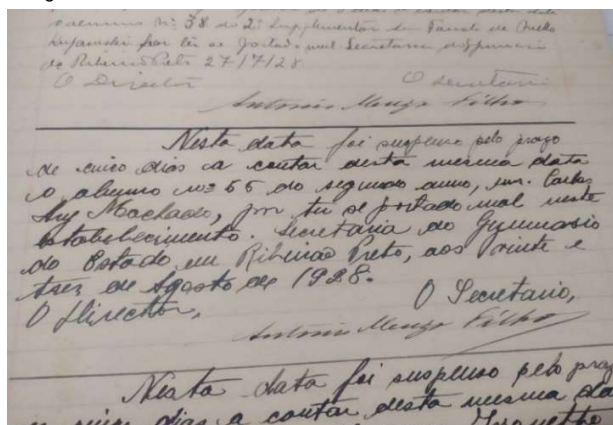 alumno nº 38 do 2º Supplementar snr. Fausto de Mello
por ter se portado mal. Secretaria do Gymnasio
de Ribeirão Preto 27/7/28
O Director O Secretario
Antonio Filho
Nesta data foi suspenso pelo prazo
de cinco dias a contar desta mesma data
o alumno nº 66 do segundo anno, snr. Carlos
Ary Machado, por ter se portado mal neste
estabelecimento. Secretaria do Gymnasio
do Estado em Ribeirão Preto, aos vinte e
tres de Agosto de 1928.
O Director, O Secretario,
Antonio Filho
Nesta data foi suspenso pelo prazo
cinco dias a contar desta mesma da